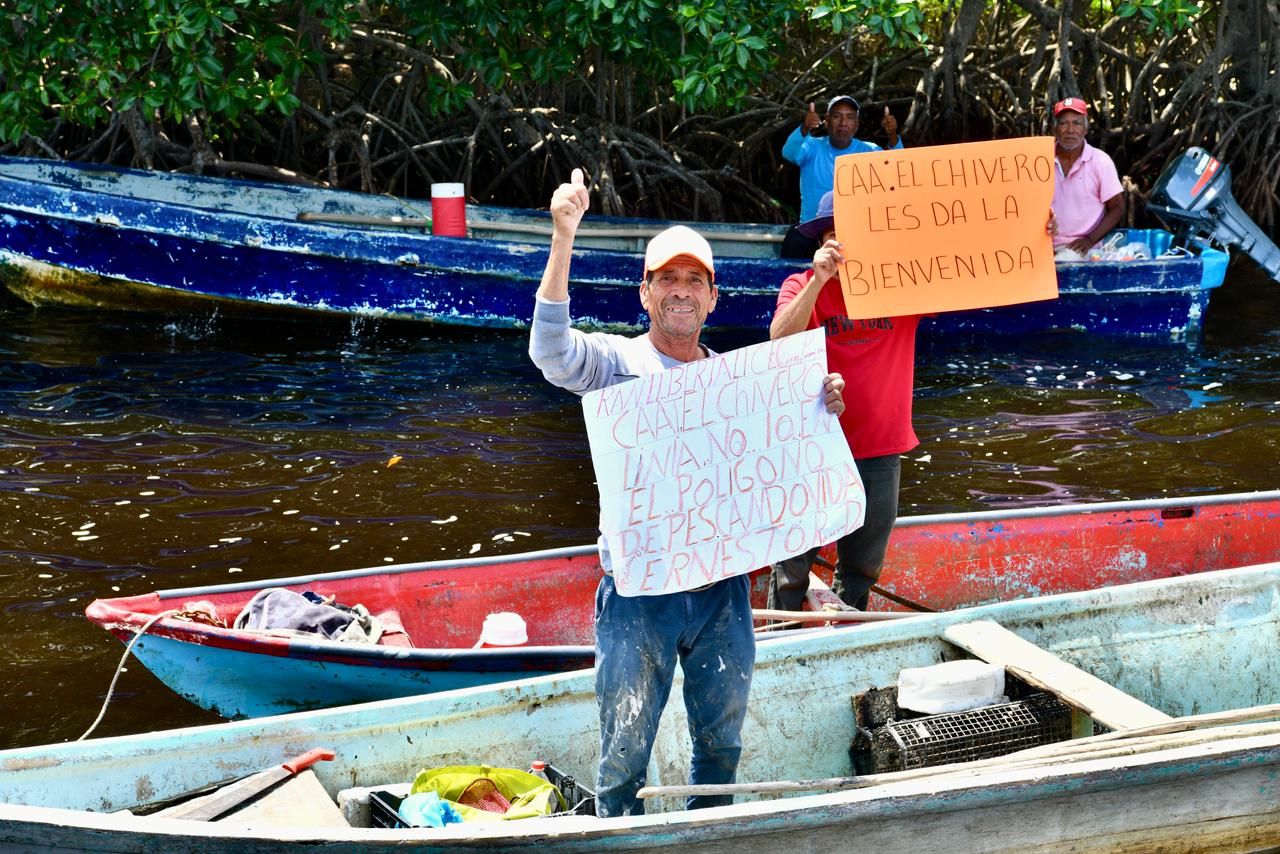 CAA. EL CHIVERO
LES DA LA
BIENVENIDA
NEW YORK
RNN. LIBERTAD
CAA. EL CHIVERO
LINIA. NO. 10. EN
EL. POLIGONO
DE PESCANDOVIDA
ERNESTO R. D